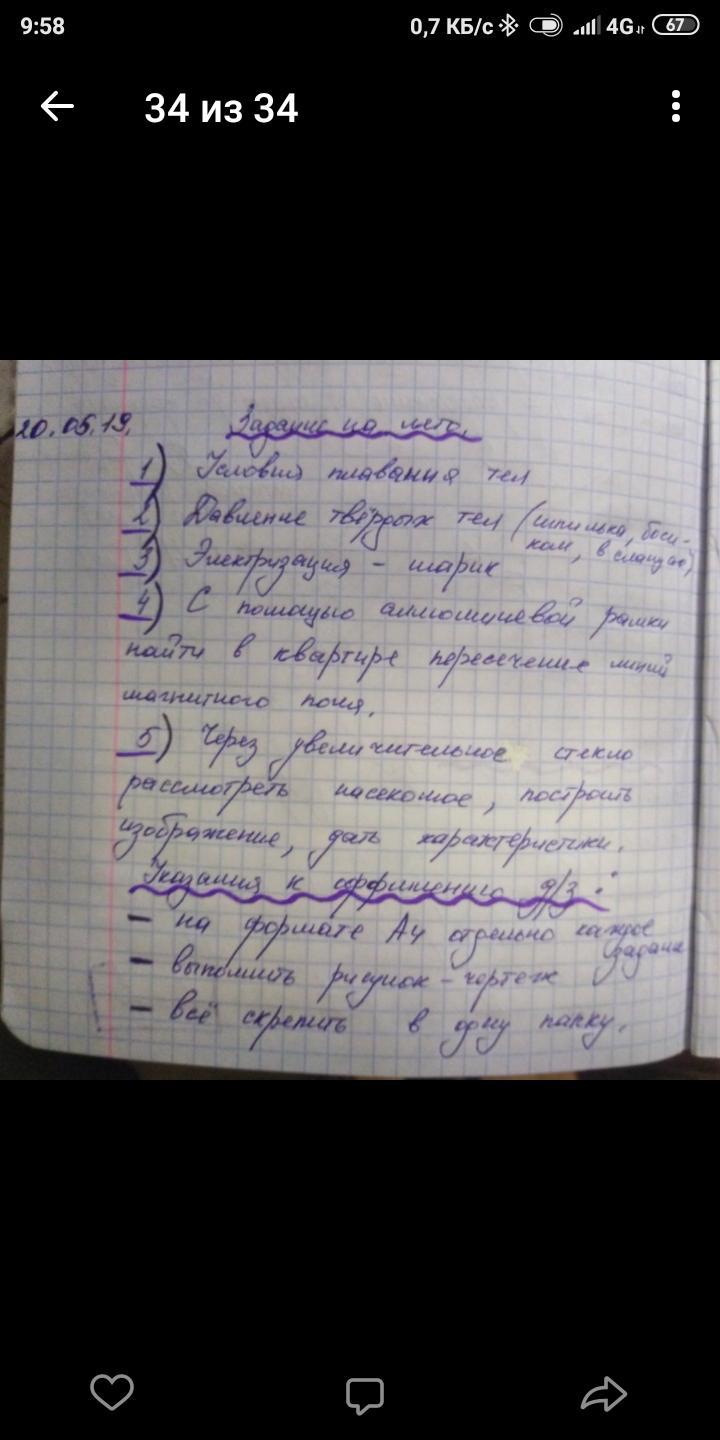 9:58 0,7 КБ/с 4G 67
34 из 34
20.05.19. Задание на лето.
1) Условия плавания тел
2) Давление твёрдых тел (шпилька, боси-
ком, в сланцах)
3) Электризация - шарик
4) С помощью аллюминевой рамки
найти в квартире пересечение линий
магнитного поля.
5) Через увеличительное стекло
рассмотреть насекомое, построить
изображение, дать характеристики.
Указания к оформлению д/з:
- на формате А4 отдельно каждое
задание
- выполнить рисунок-чертеж
- всё скрепить в одну папку.